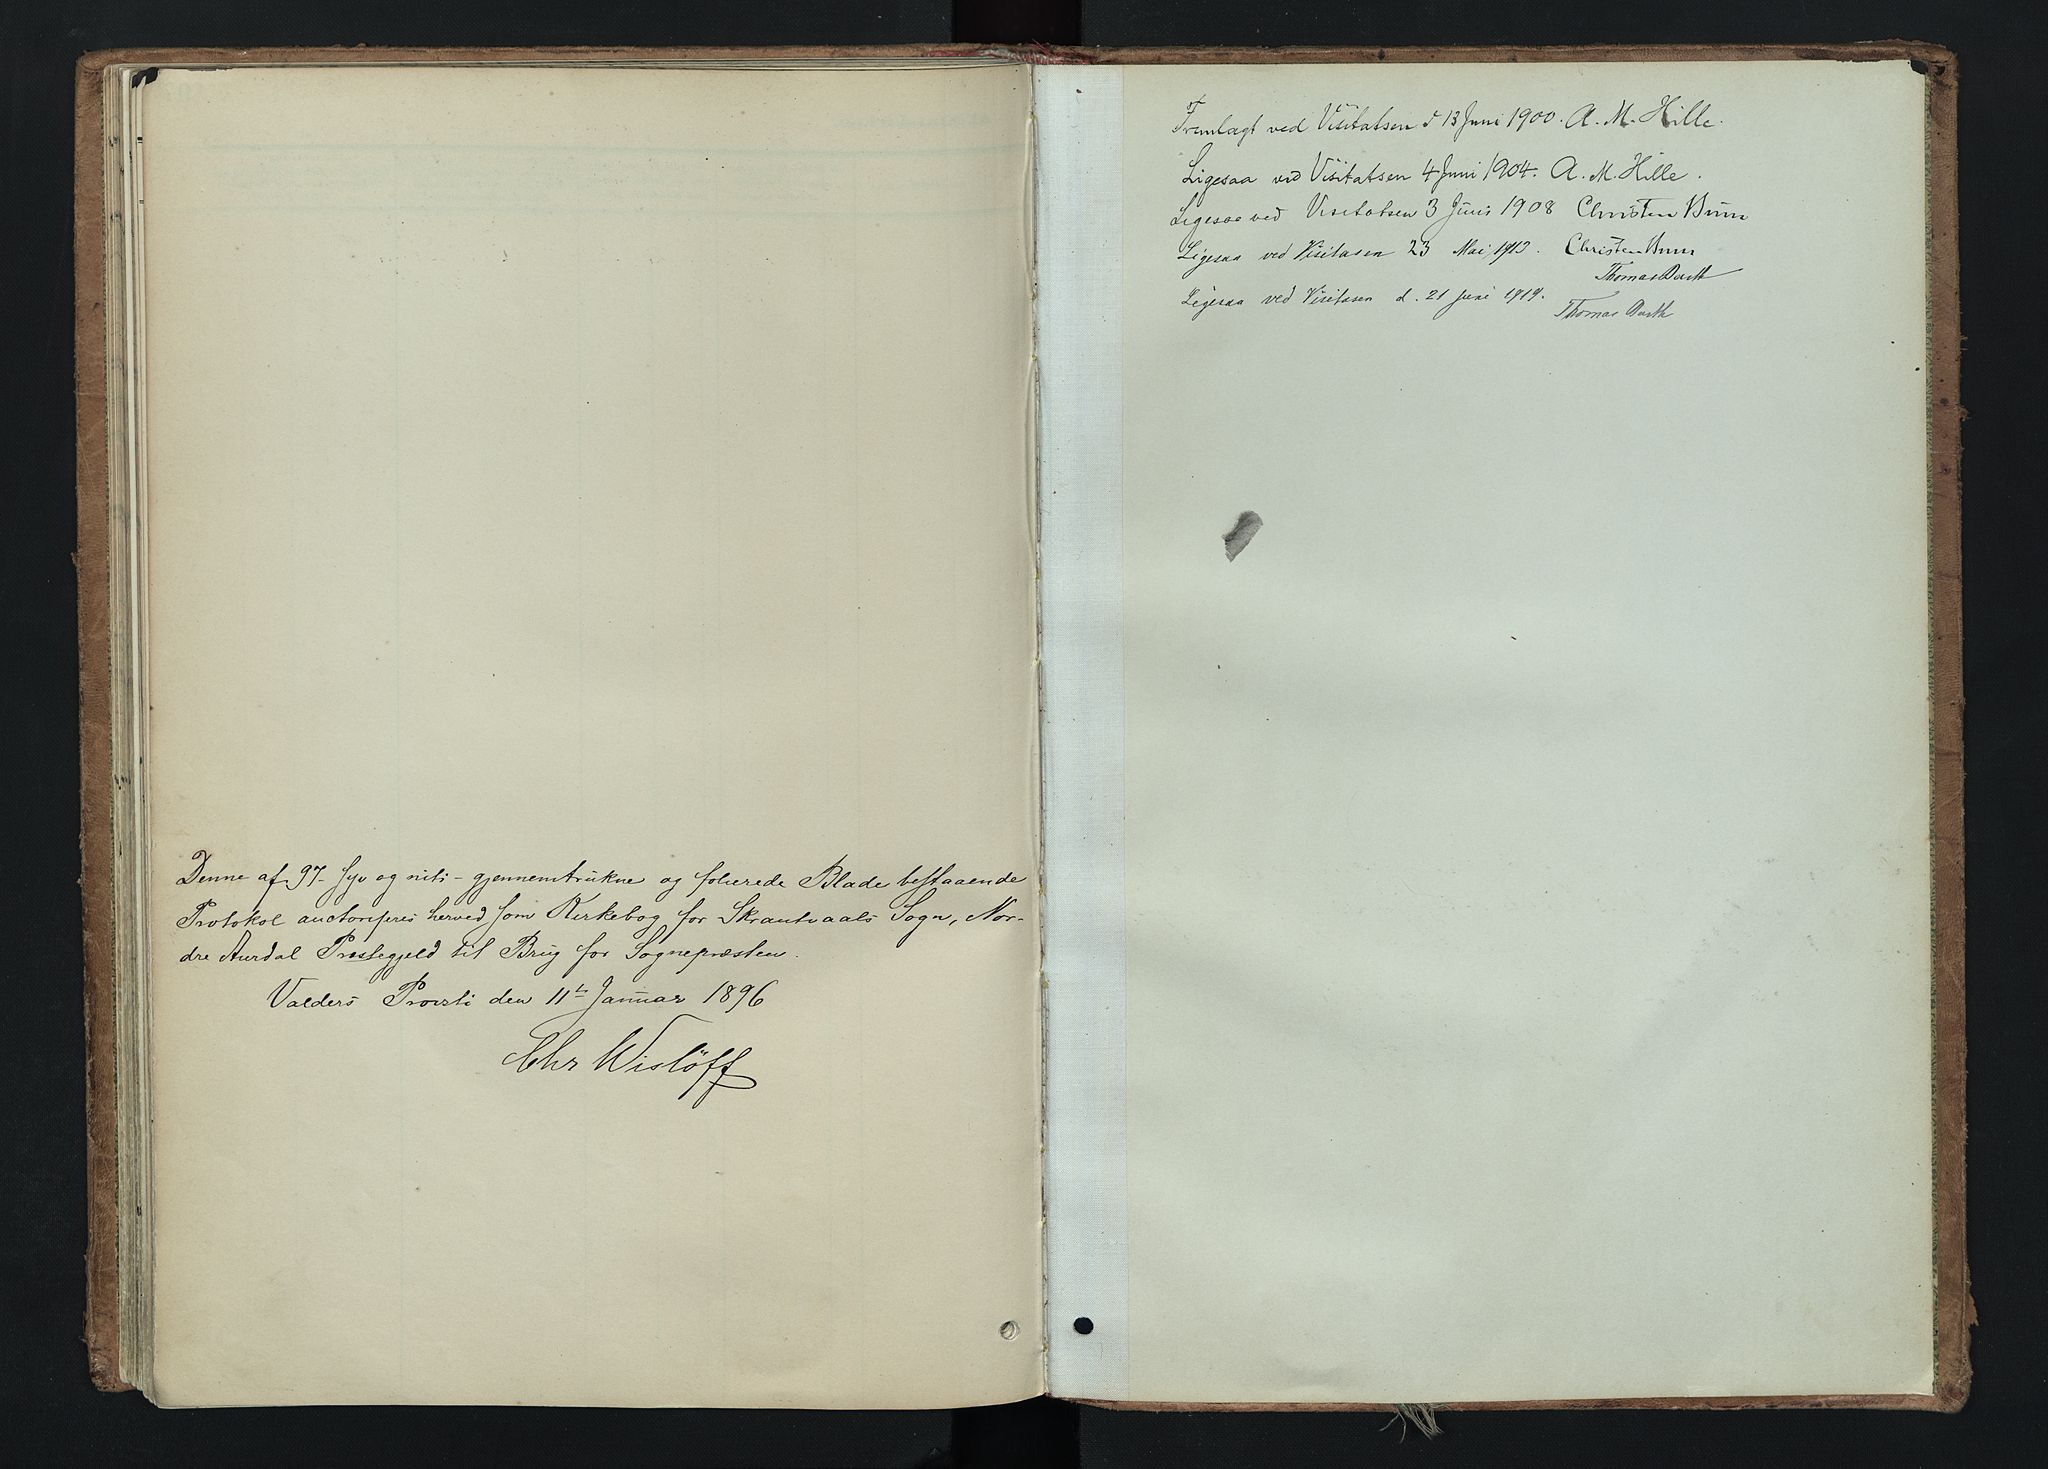 Denne af 97 - syv og niti - gjennemtrukne og folierede Blade bestaaende
Protokol auctoriseres herved som Kirkebog for Skrautvaals Sogn, Nor-
dre Aurdal Præstegjeld til Brug for Sognepræsten.
Valders Provsti den 11te Januar 1896
Chr Wislöff
Fremlagt ved Visitatsen d 13 Juni 1900. A. M. Hille.
Ligesaa ved Visitatsen 4 Juni 1904. A. M. Hille.
Ligesaa ved Visitatsen 3 Juni 1908 Christen Brun
Ligesaa ved Visitasen 23 Mai 1913. Christen Brun
Thomas Barth
Ligesaa ved Visitasen d. 21 juni 1919.
Thomas Barth